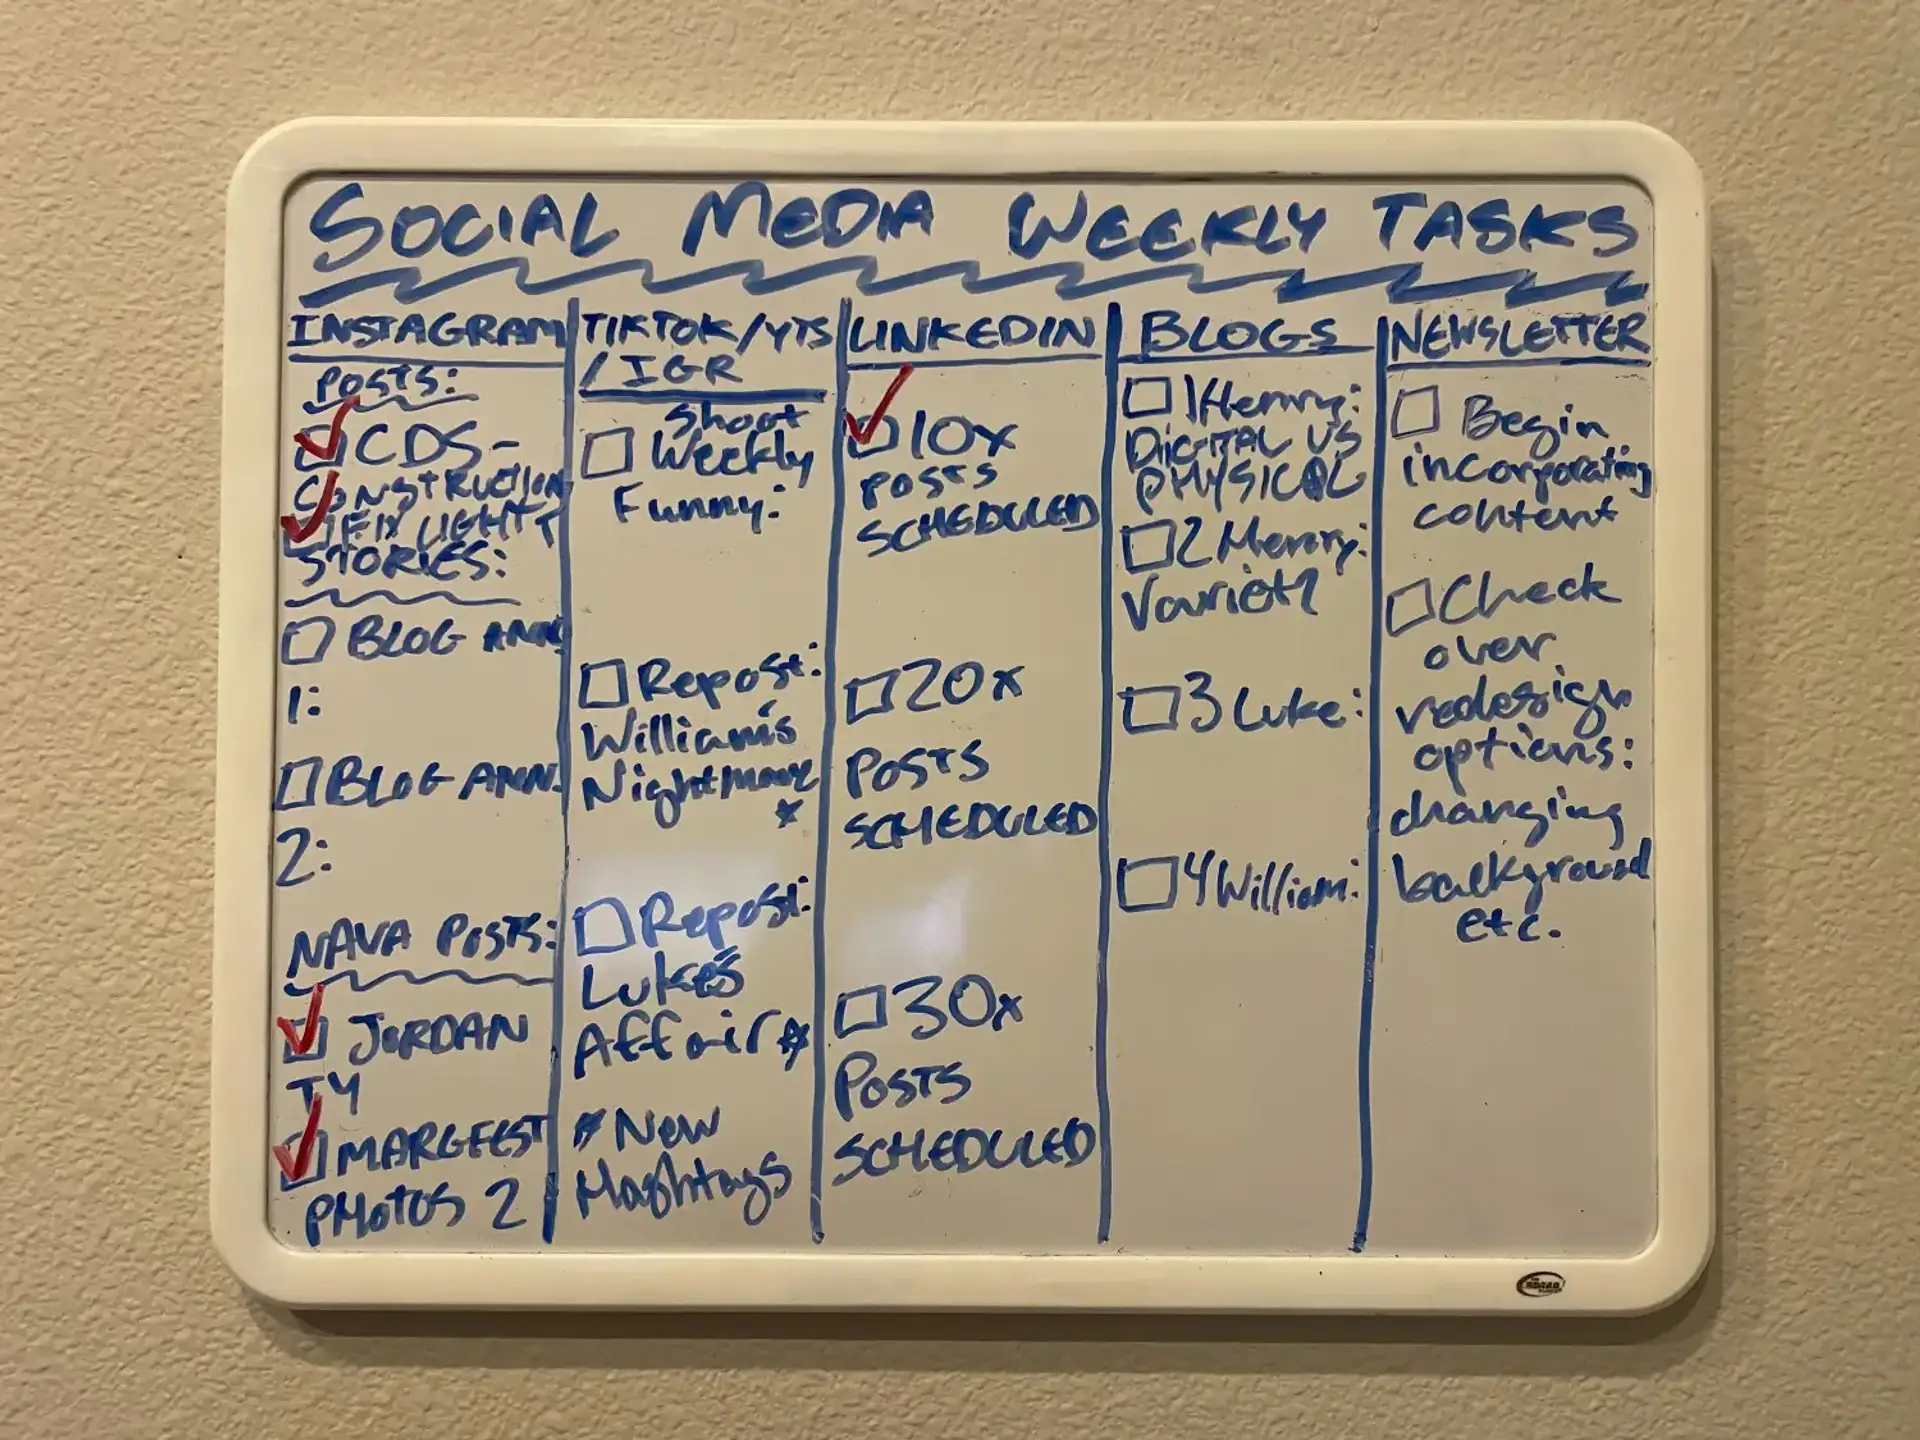 SOCIAL MEDIA WEEKLY TASKS
INSTAGRAM
POSTS:
CDS-
CONSTRUCTION
FIX LIGHT
STORIES:
BLOG ANN.
1:
BLOG ANN.
2:
NAVA POSTS:
JORDAN
TY
MARGFEST
PHOTOS 2
TIKTOK/YTS
/IGR
Shoot
Weekly
Funny:
Repost:
William's
Nightmare
*
Repost:
Luke's
Affair*
*New
Hashtags
LINKEDIN
10x
POSTS
SCHEDULED
20x
POSTS
SCHEDULED
30x
POSTS
SCHEDULED
BLOGS
1Henry:
DIGITAL VS
PHYSICAL
2 Henry:
Variety
3 Luke:
4 William:
NEWSLETTER
Begin
incorporating
content
Check
over
redesign
options:
changing
background
etc.